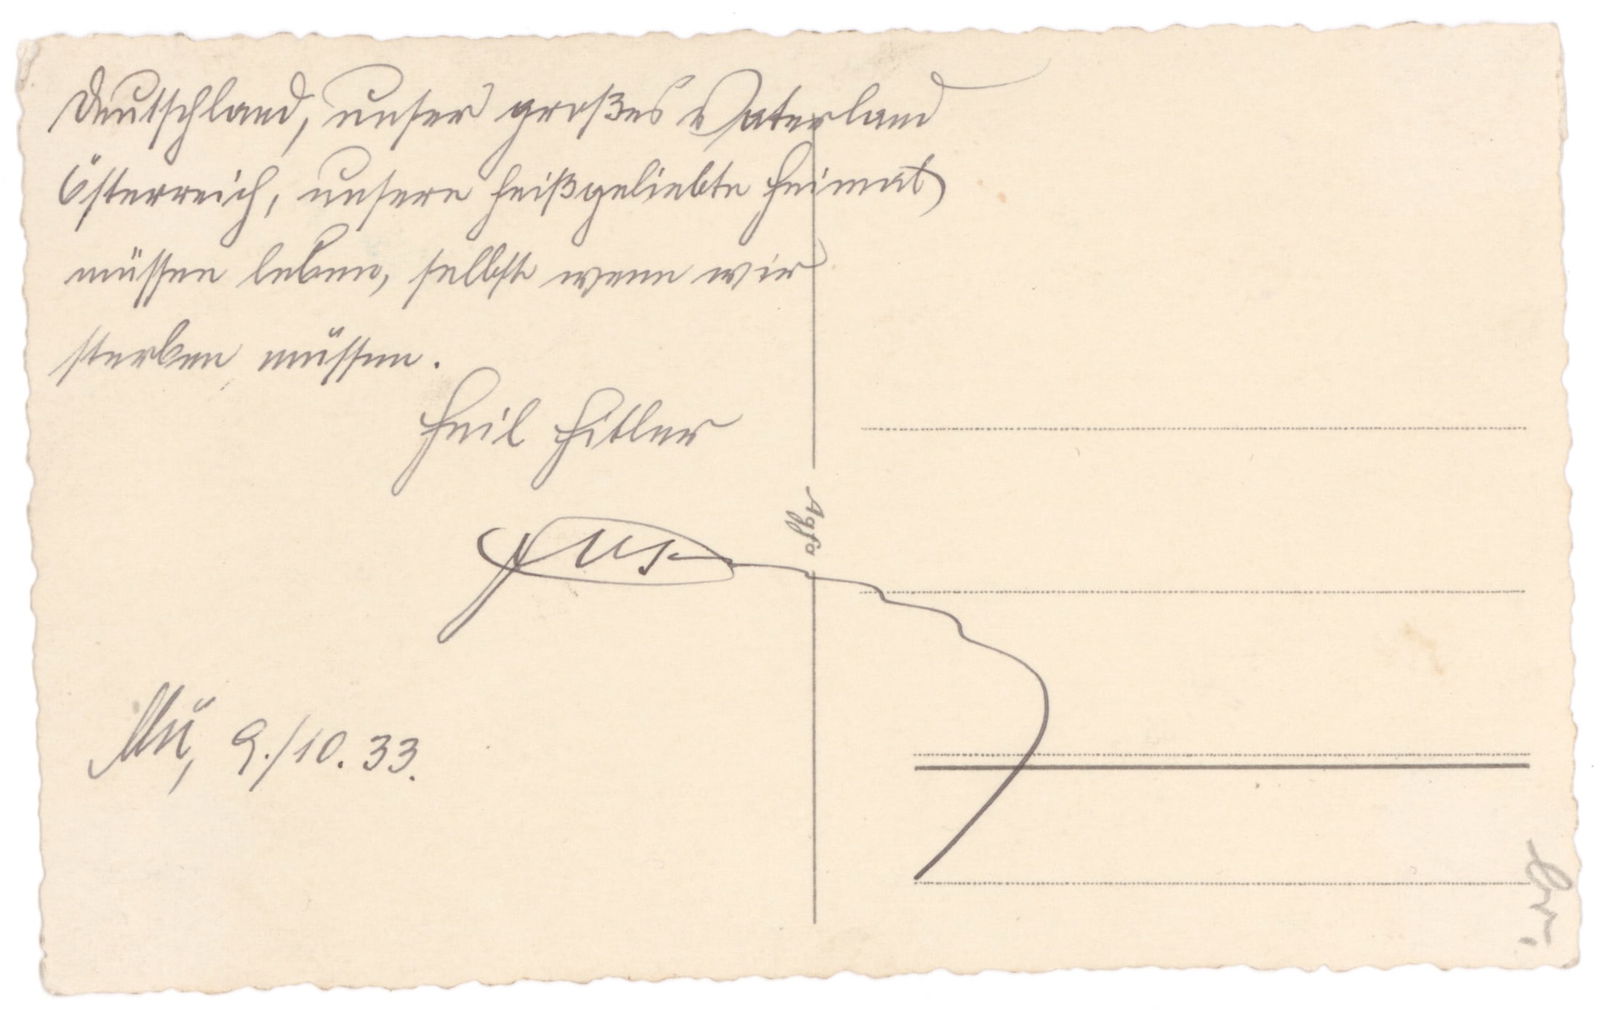 Deutschland, unser großes Vaterland
Österreich, unsere heißgeliebte Heimat
müssen leben, selbst wenn wir
sterben müssen.
Heil Hitler
Mü, 9./10. 33.
Agfa